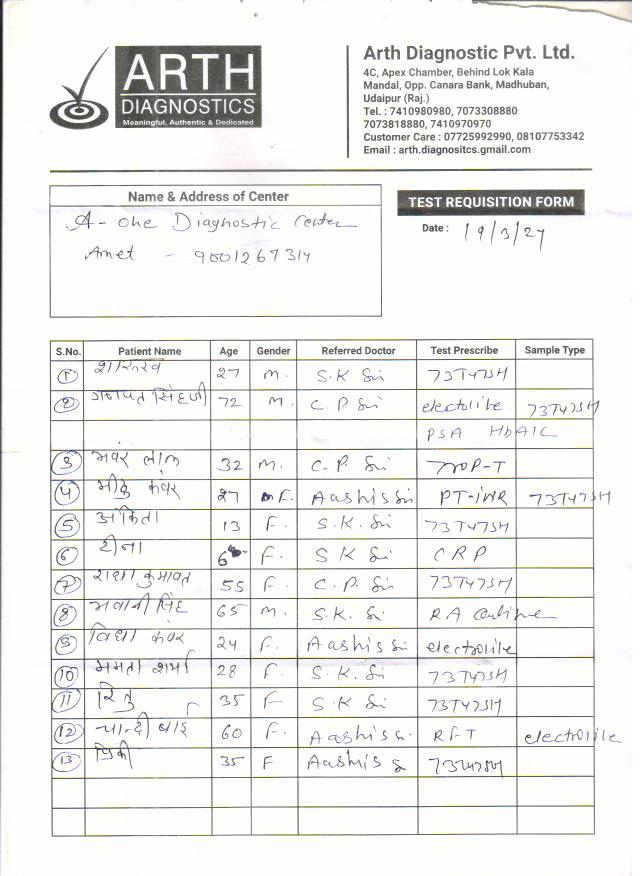 ARTH
DIAGNOSTICS
Meaningful, Authentic & Dedicated
Arth Diagnostic Pvt. Ltd.
4C, Apex Chamber, Behind Lok Kala
Mandal, Opp. Canara Bank, Madhuban,
Udaipur (Raj.)
Tel. : 7410980980, 7073308880
7073818880, 7410970970
Customer Care : 07725992990, 08107753342
Email : arth.diagnositcs.gmail.com
Name & Address of Center
A-one Diagnostic Center
Amet - 9001267314
TEST REQUISITION FORM
Date : 19/3/24
S.No. Patient Name Age Gender Referred Doctor Test Prescribe Sample Type
1 27 M. S.K Sir T3T4TSH
2 गनपत सिंहजी 72 M. C.P Sir electolite. T3T4TSH
PSA HbA1C
3 भवर लाल 32 M. C.P. Sir
4 कंवर 27 F. Aashis Sir PT-INR T3T4TSH
5 अंकिता 13 F. S.K. Sir T3T4TSH
6 टीना F. S K Sir CRP
7 राधा कुमावत 55 F. C.P. Sir T3T4TSH
8 भवानी सिंह 65 M. S.K. Sir RA
9 विधा कंवर 24 F. Aashis Sir electolite
10 ममता शर्मा 28 F. S.K. Sir T3T4TSH
11 रितु 35 F S.K Sir T3T4TSH
12 चान्दी बाई 60 F. Aashis Sir RFT electolite
13 35 F Aashis Sir T3T4TSH